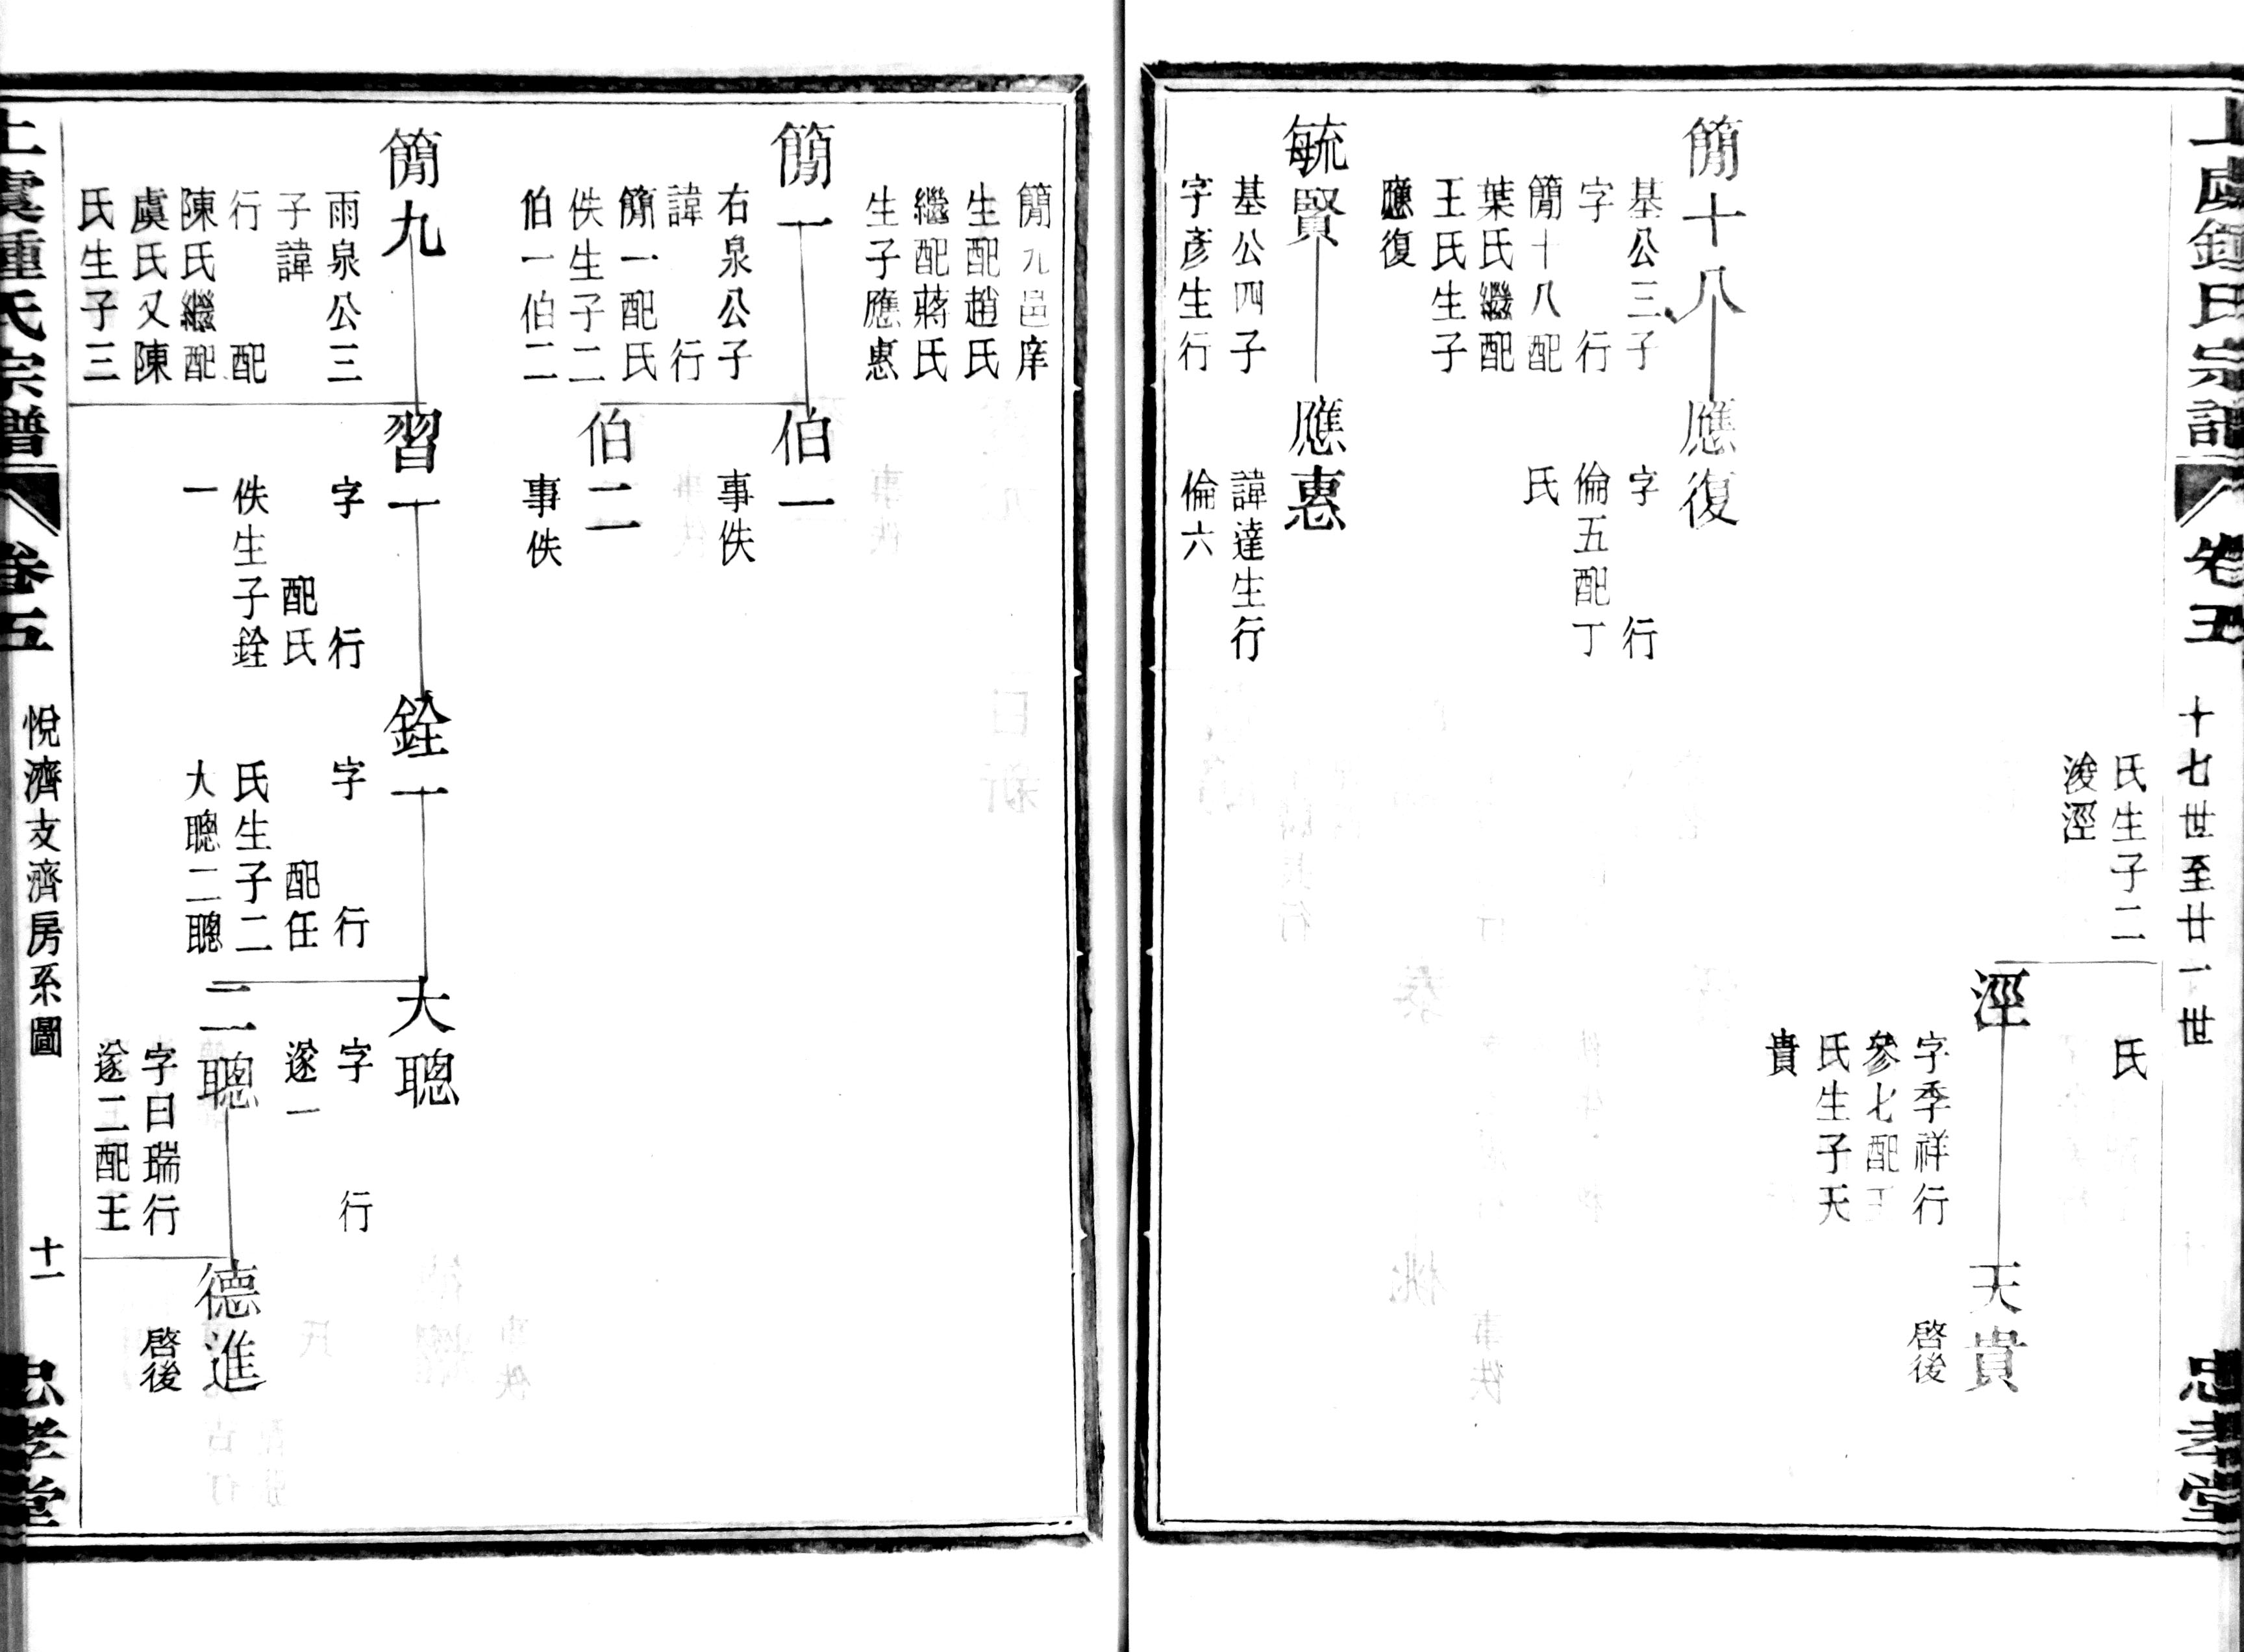 上虞鍾氏宗譜
卷五
十七世至廿一世
忠孝堂
氏生子二
浚涇
氏
涇
字季祥行
參七配王
氏生子天
貴
天貴
啓後
簡十八
基公三子
字　行
簡十八配
葉氏繼配
王氏生子
應復
應復
字　行
倫五配丁
氏
毓賢
基公四子
字彥生行
應惠
諱達生行
倫六
簡九邑庠
生配趙氏
繼配蔣氏
生子應惠
簡一
右泉公子
諱　行
簡一配氏
佚生子二
伯一伯二
伯一
事佚
伯二
事佚
簡九
雨泉公三
子諱
行　配
陳氏繼配
虞氏又陳
氏生子三
習一
字　行
配氏
佚生子銓
一
銓一
字　行
配任
氏生子二
大聰二聰
大聰
字　行
遂一
二聰
字曰瑞行
遂二配王
德進
啓後
上虞鍾氏宗譜
卷五
悅濟支濟房系圖
十一
忠孝堂